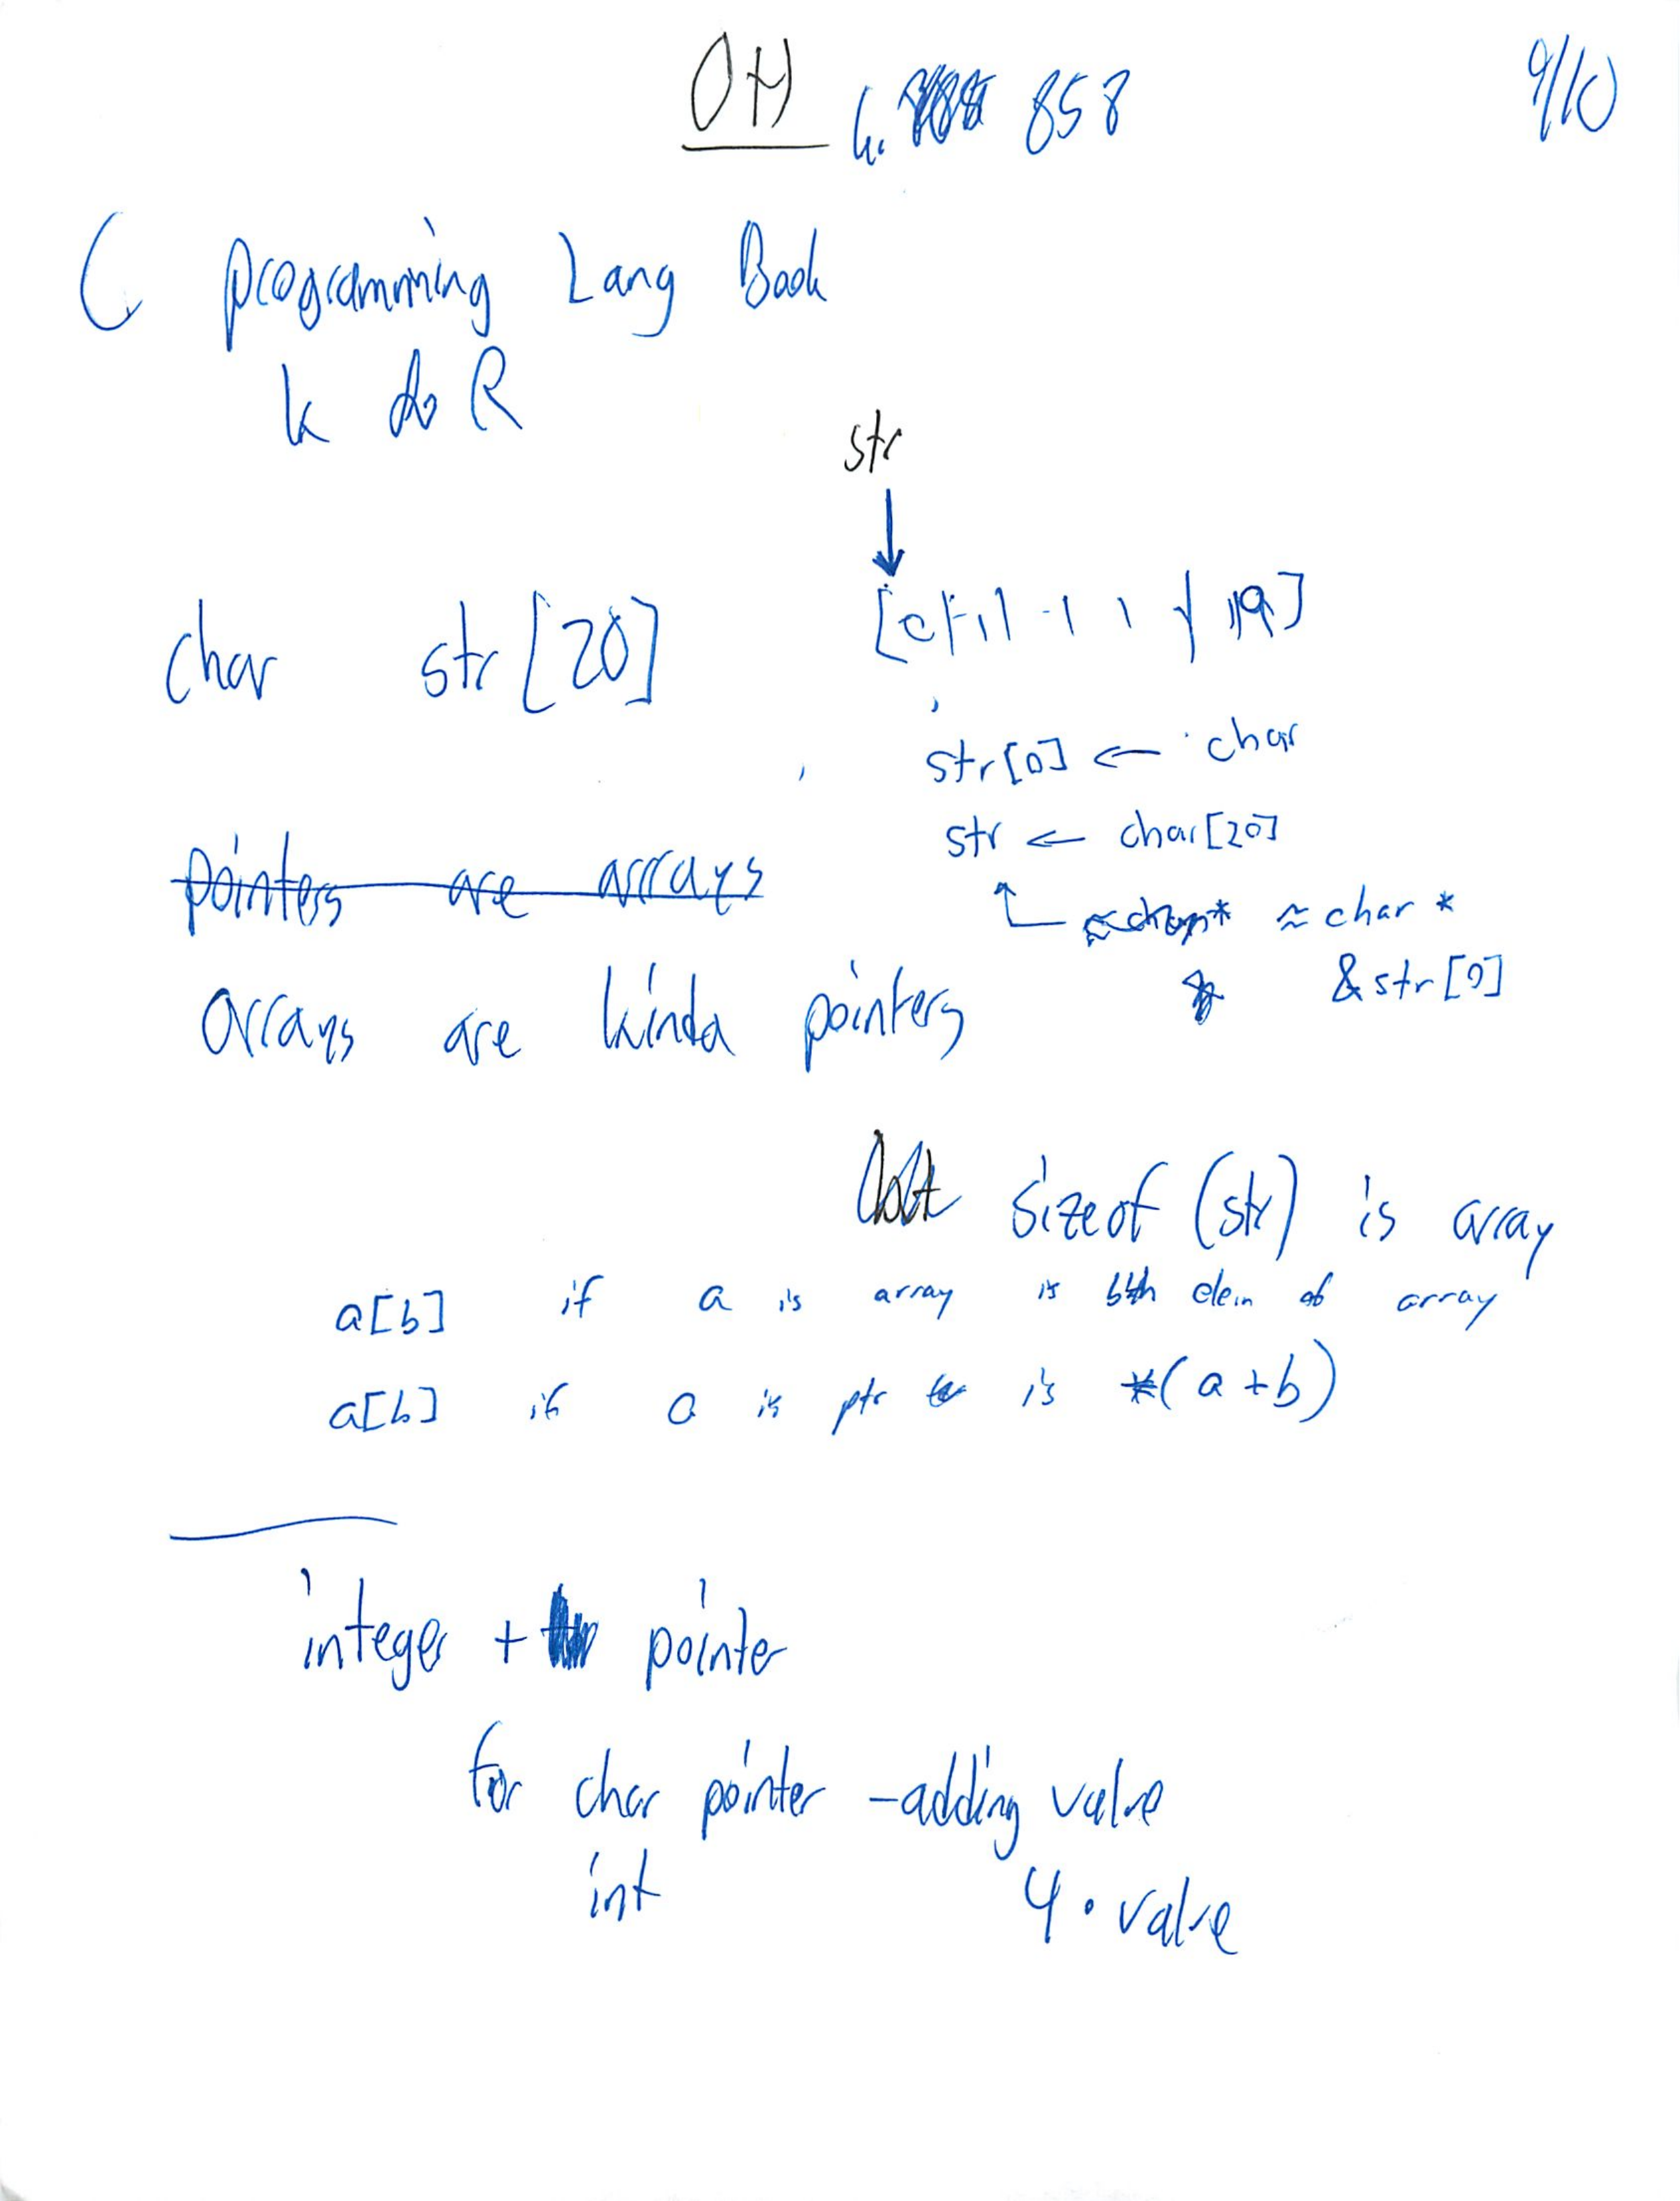 OH 6. 858 9/10
C programming Lang Book
K & R
str
char str[20]
[0 19]
str[0] ← char
str ← char[20]
pointers are arrays
≈ char* ≈ char *
&str[0]
arrays are kinda pointers
but sizeof (str) is array
a[b] if a is array is bth elem of array
a[b] if a is ptr is *(a+b)
integer + pointer
for char pointer - adding value
int 4 • value